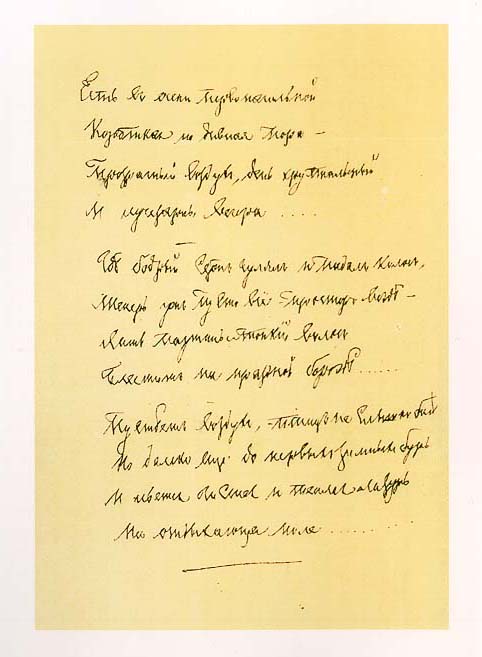 Есть въ осени первоначальной
Короткая но дивная пора —
Прозрачный воздухъ, день хрустальный
И лучезарны вечера ....
Гдѣ бодрый Серпъ гулялъ и падалъ колосъ,
Теперь ужъ пусто всё — просторъ вездѣ —
Лишь паутины тонкій волосъ
Блеститъ на праздной бороздѣ ......
Пустѣетъ воздухъ, — птицъ не слышно болѣ
Но далеко еще до первыхъ зимнихъ бурь
И льется чистая и теплая лазурь
На отдыхающее поле ........